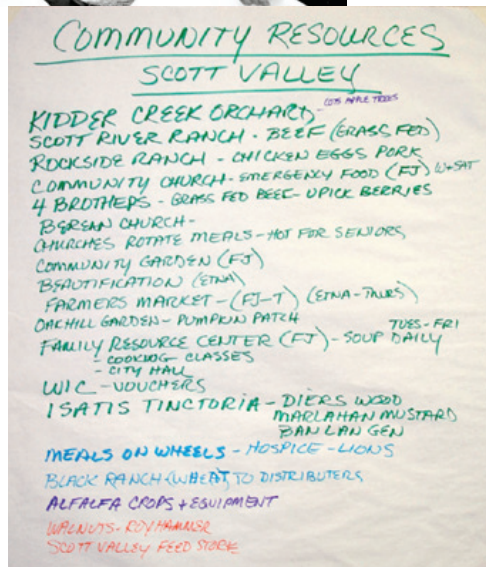 COMMUNITY RESOURCES
SCOTT VALLEY
KIDDER CREEK ORCHARD - LOTS APPLE TREES
SCOTT RIVER RANCH - BEEF (GRASS FED)
ROCKSIDE RANCH - CHICKEN EGGS PORK
COMMUNITY CHURCH - EMERGENCY FOOD (FJ) W+SAT
4 BROTHERS - GRASS FED BEEF - UPICK BERRIES
BEREAN CHURCH -
CHURCHES ROTATE MEALS - HOT FOR SENIORS
COMMUNITY GARDEN (FJ)
BEAUTIFICATION (ETNA)
FARMERS MARKET - (FJ-T) (ETNA-THURS)
OAKHILL GARDEN - PUMPKIN PATCH
FAMILY RESOURCE CENTER (FJ) - SOUP DAILY TUES-FRI
- COOKING CLASSES
- CITY HALL
WIC - VOUCHERS
ISATIS TINCTORIA - DIERS WOOD
MARLAHAN MUSTARD
BAN LAN GEN
MEALS ON WHEELS - HOSPICE - LIONS
BLACK RANCH (WHEAT) TO DISTRIBUTERS
ALFALFA CROPS + EQUIPMENT
WALNUTS - ROY HAMNER
SCOTT VALLEY FEED STORE